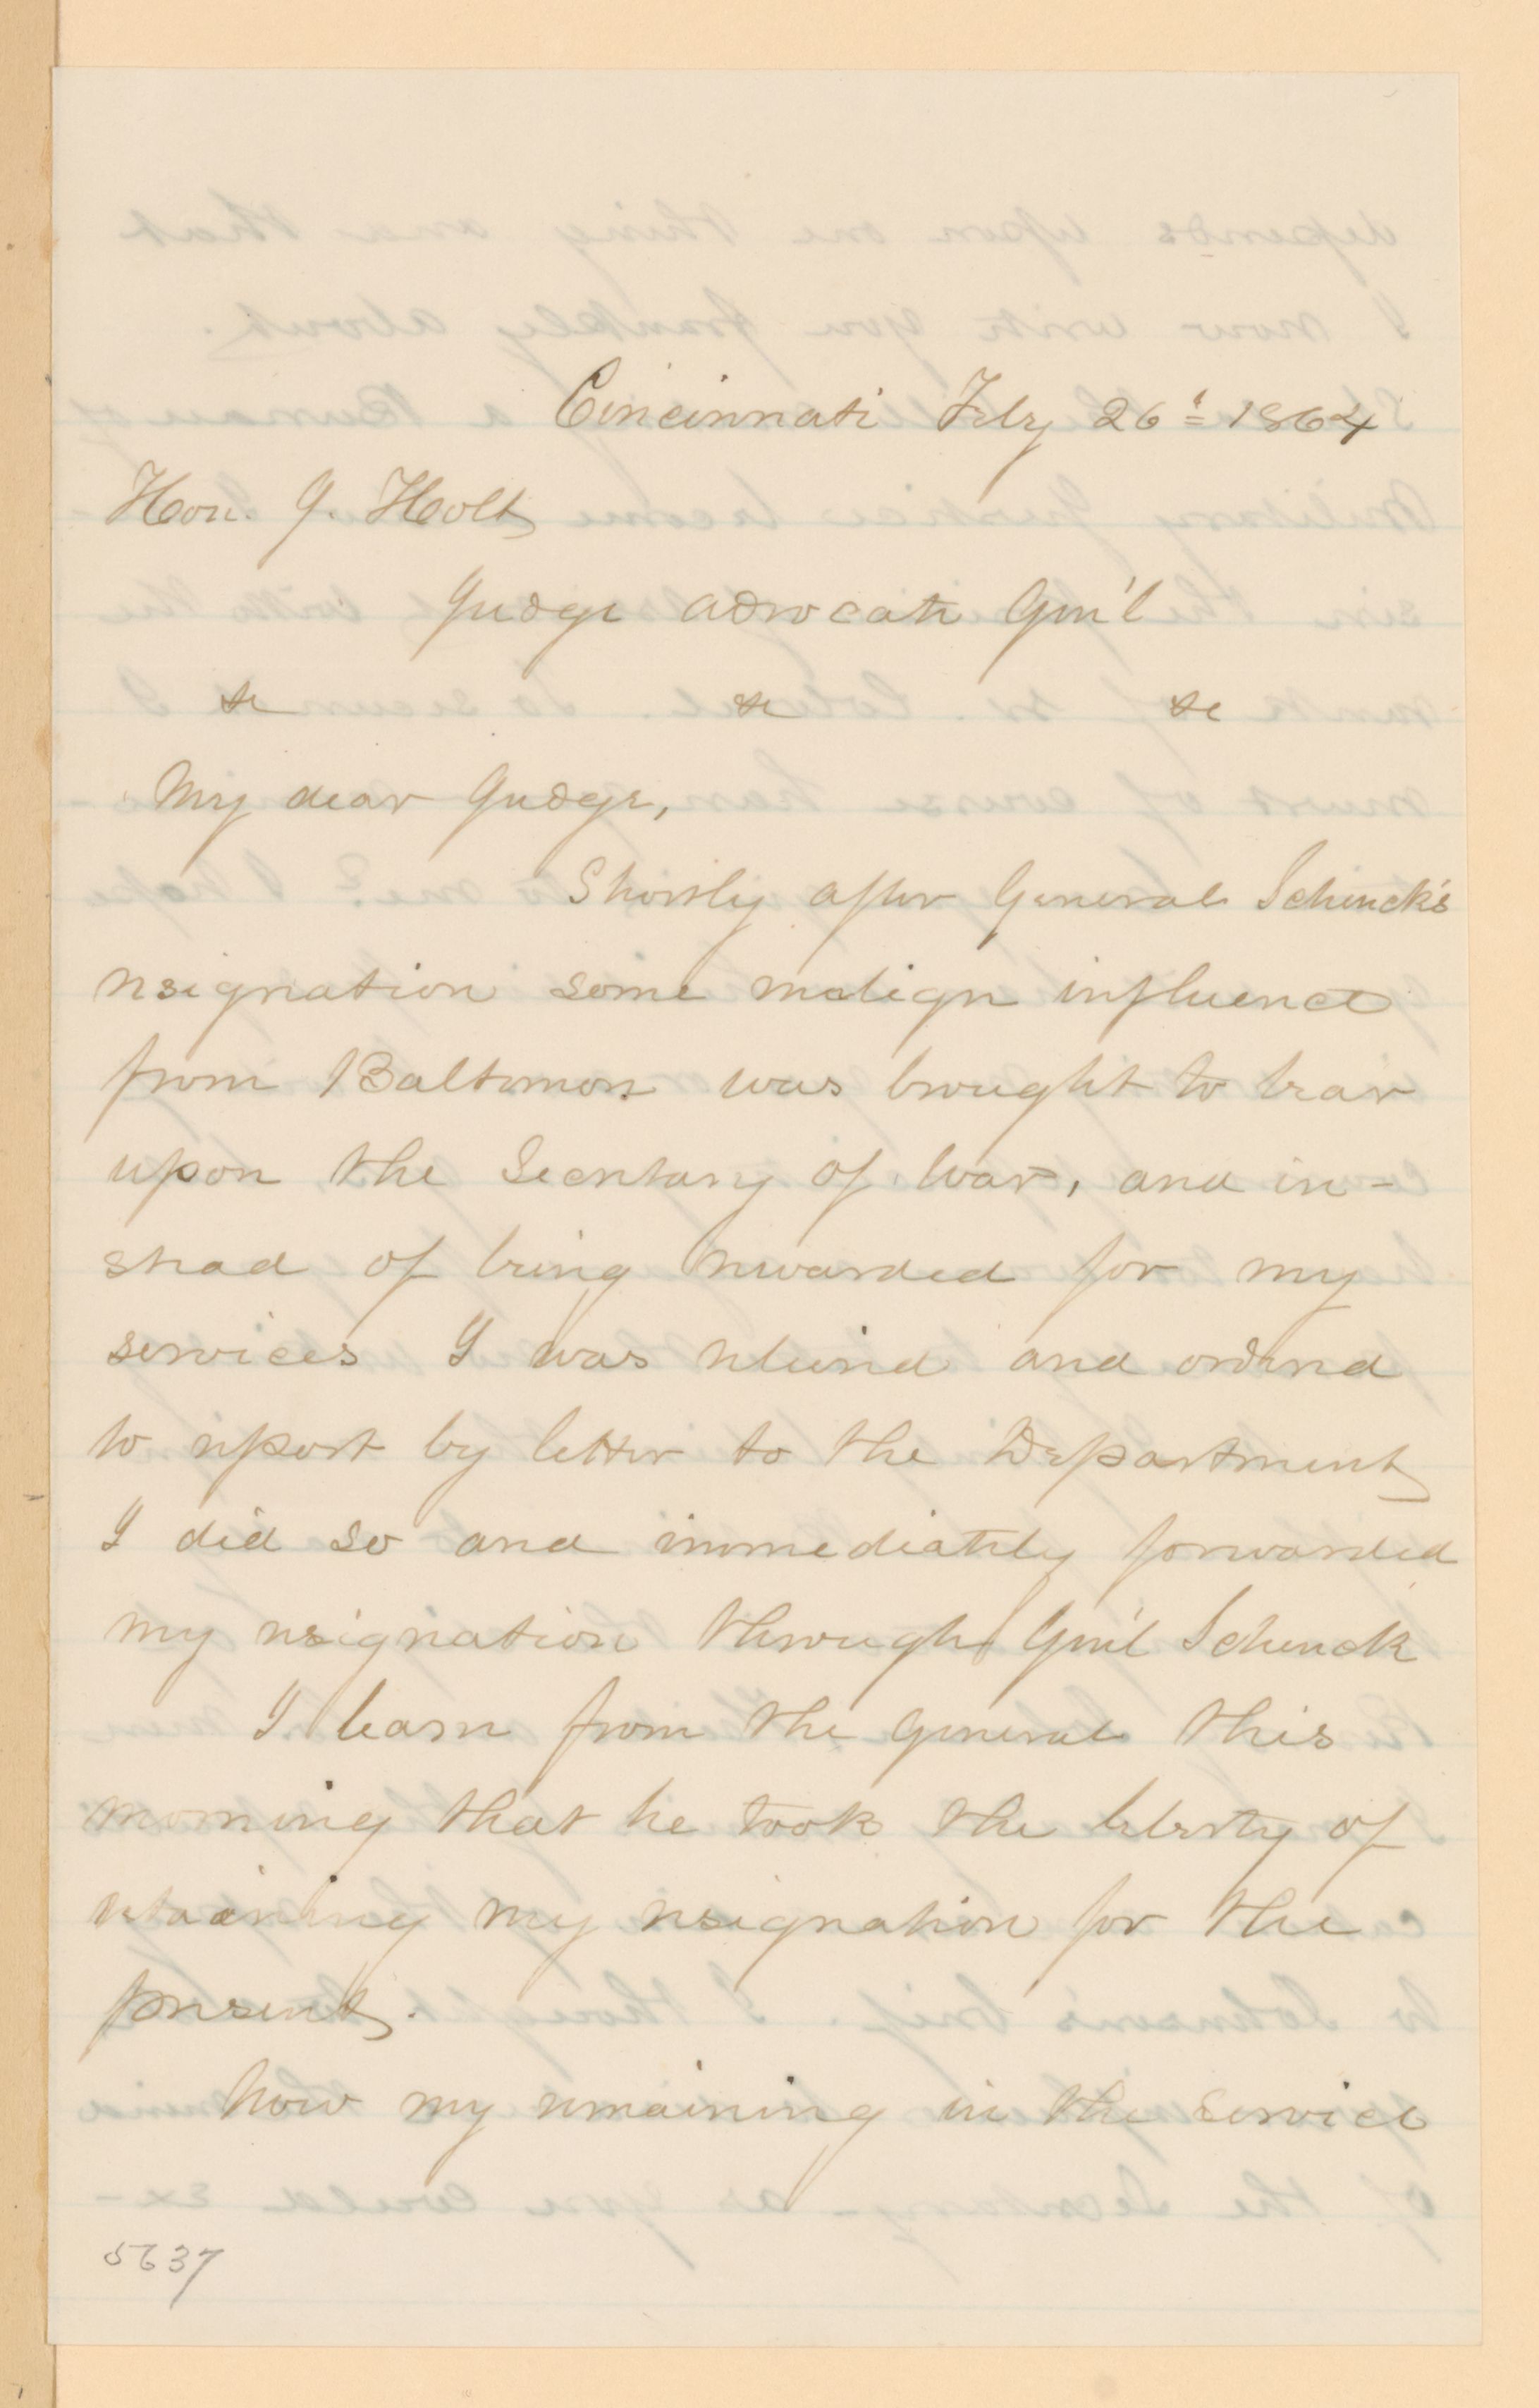 Cincinnati Feby 26t 1864
Hon. J. Holt
Judge Advocate Gen'l
&c &c &c
My dear Judge,
Shortly after General Schenck's
resignation some malign influence
from Baltimore was brought to bear
upon the Secretary of War, and in-
stead of being rewarded for my
services I was relieved and ordered
to report by letter to the Department
I did so and immediately forwarded
my resignation through Gen'l Schenck
I learn from the General this
morning that he took the liberty of
retaining my resignation for the
present.
Now my remaining in the service
5637